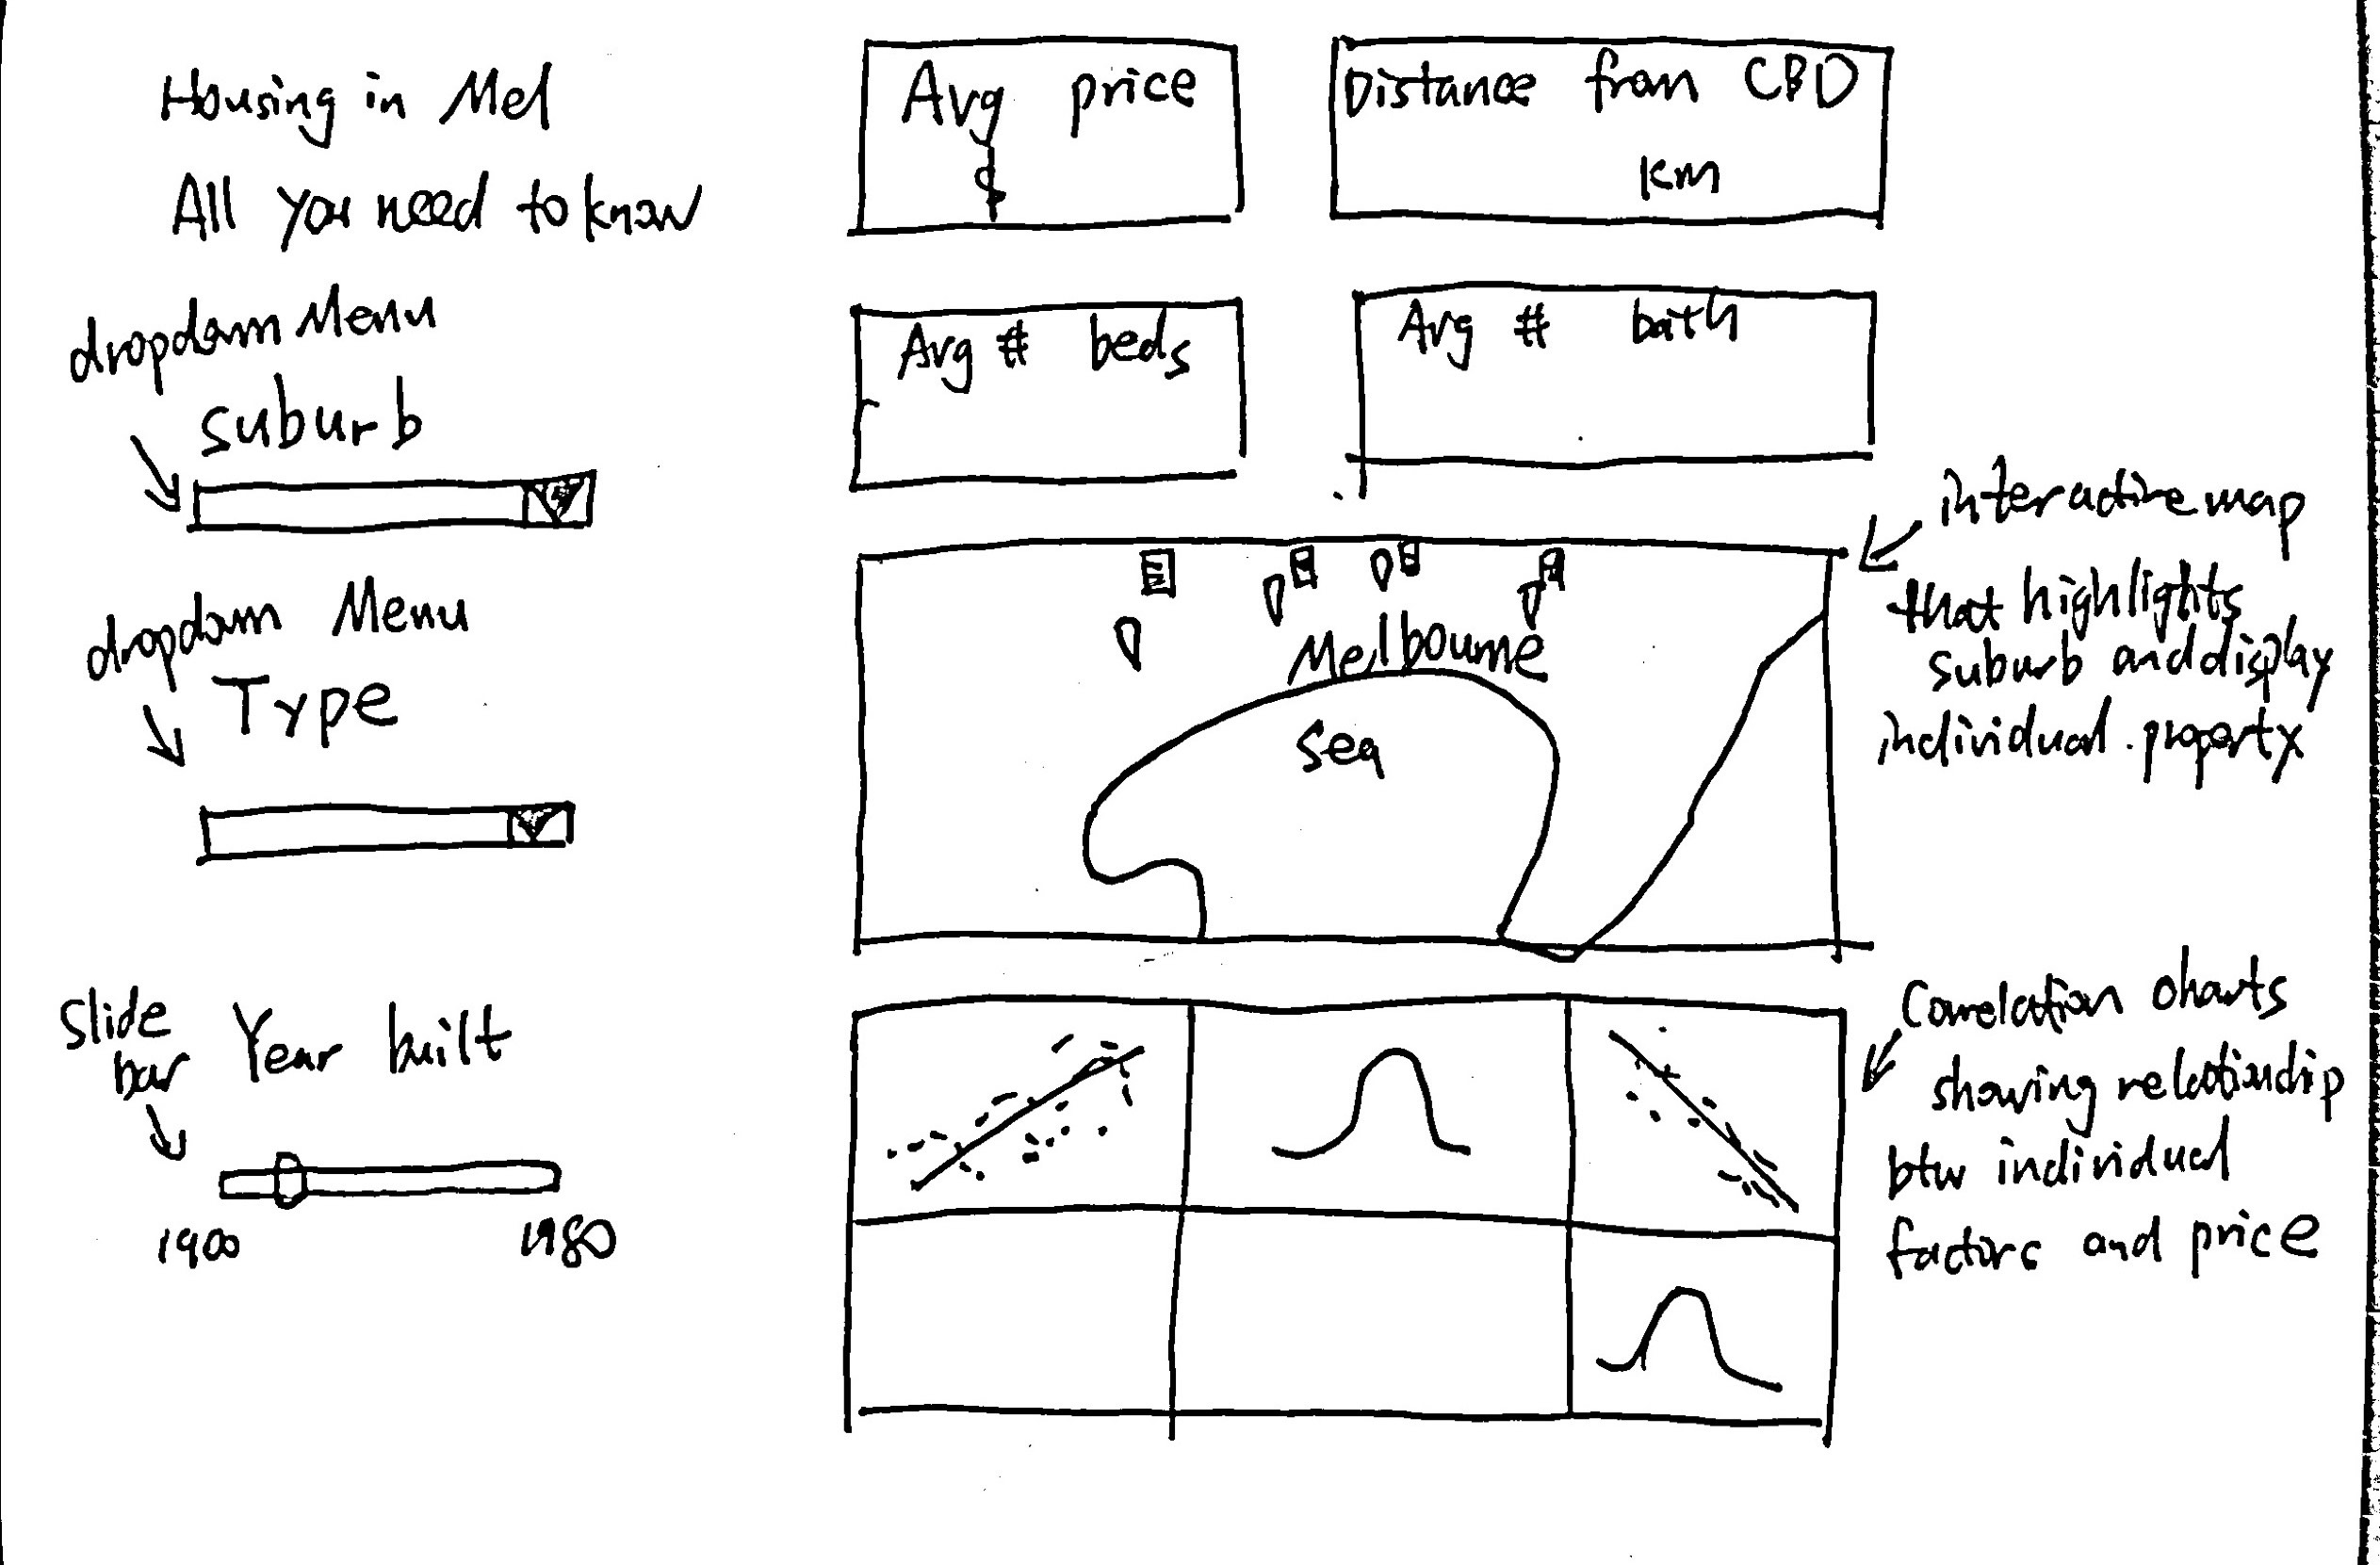 Housing in Mel
All you need to know
dropdown Menu
suburb
dropdown Menu
Type
Slide
bar
Year built
1900
1980
Avg price
$
Distance from CBD
km
Avg # beds
Avg # bath
Melbourne
sea
interactive map
that highlights
suburb and display
individual property
Correlation charts
showing relationship
btw individual
factors and price